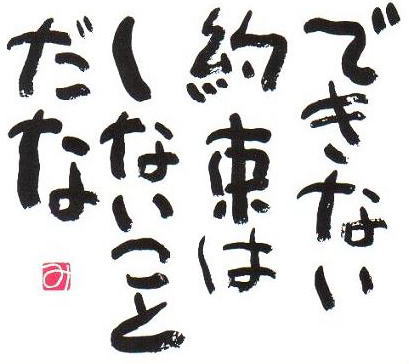 できない
約束は
しないこと
だな
み